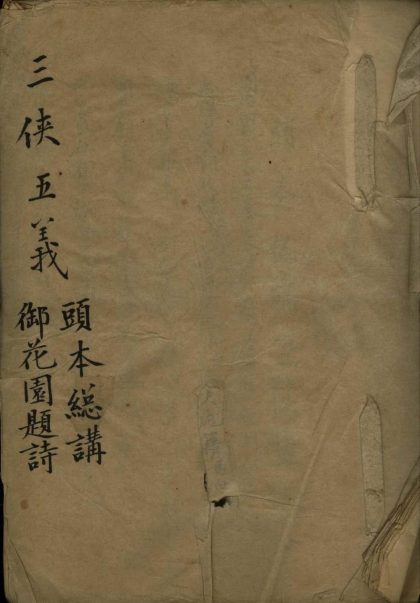 三俠五義
頭本総講
御花園題詩